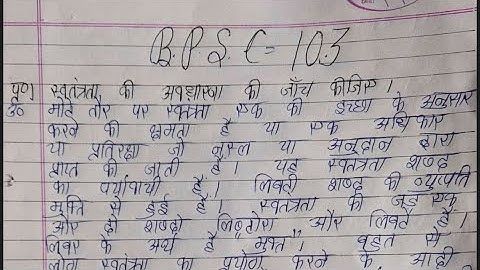 B.P.S.C = 103
प्र०1 स्वतंत्रता की अवधारणा की जाँच कीजिए।
उ० मोटे तौर पर स्वतंत्रता एक की इच्छा के अनुसार
करने की क्षमता है या एक अधिकार
या प्रतिरक्षा जो नस्ल या अनुदान द्वारा
प्राप्त की जाती है। यह स्वतंत्रता शब्द
का पर्यायवाची है। लिबर्टी शब्द की व्युत्पत्ति
मुक्ति से हुई है। स्वतंत्रता की जड़ एक
और दो शब्दों और लिबर्ट है।
लिबर के अर्थ है "मुक्त"। बहुत से
लोग स्वतंत्रता का प्रयोग करने के आदी